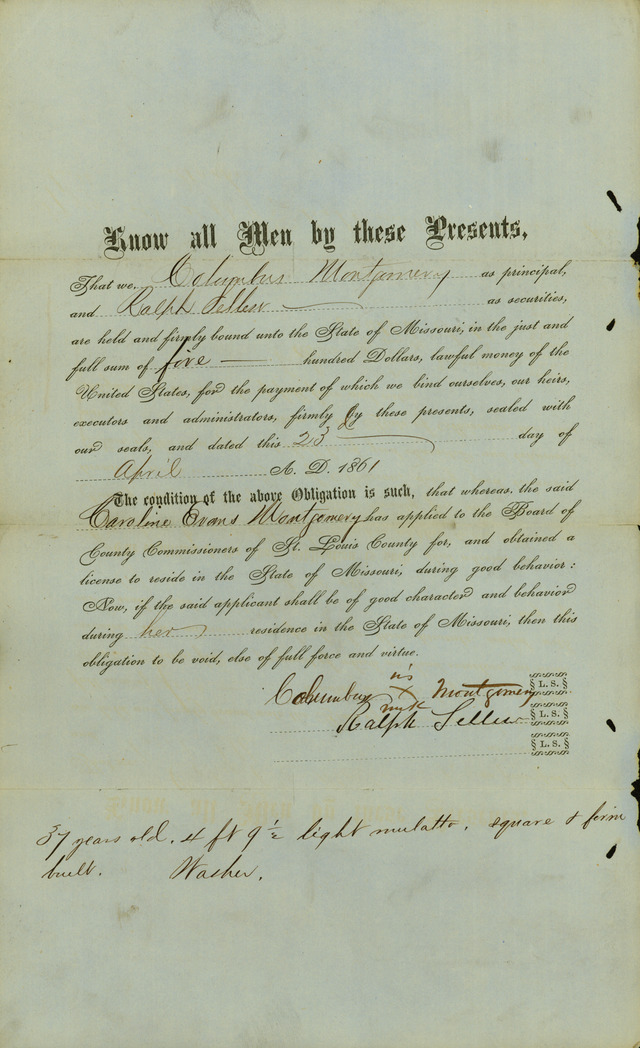 Know all Men by these Presents,
That we, Columbus Montgomery as principal,
and Ralph Sellew as securities,
are held and firmly bound unto the State of Missouri, in the just and
full sum of five — hundred Dollars, lawful money of the
United States, for the payment of which we bind ourselves, our heirs,
executors and administrators, firmly by these presents, sealed with
our seals, and dated this 23 day of
April A. D. 1861
The condition of the above Obligation is such, that whereas, the said
Caroline Evans Montgomery has applied to the Board of
County Commissioners of St. Louis County for, and obtained a
license to reside in the State of Missouri, during good behavior:
Now, if the said applicant shall be of good character and behavior
during her residence in the State of Missouri, then this
obligation to be void, else of full force and virtue.
his
Columbus X Montgomery L. S.
mark
Ralph Sellew L. S.
L. S.
37 years old. 4 ft 9 1/2 light mulatto. square & firm
built. Washer.